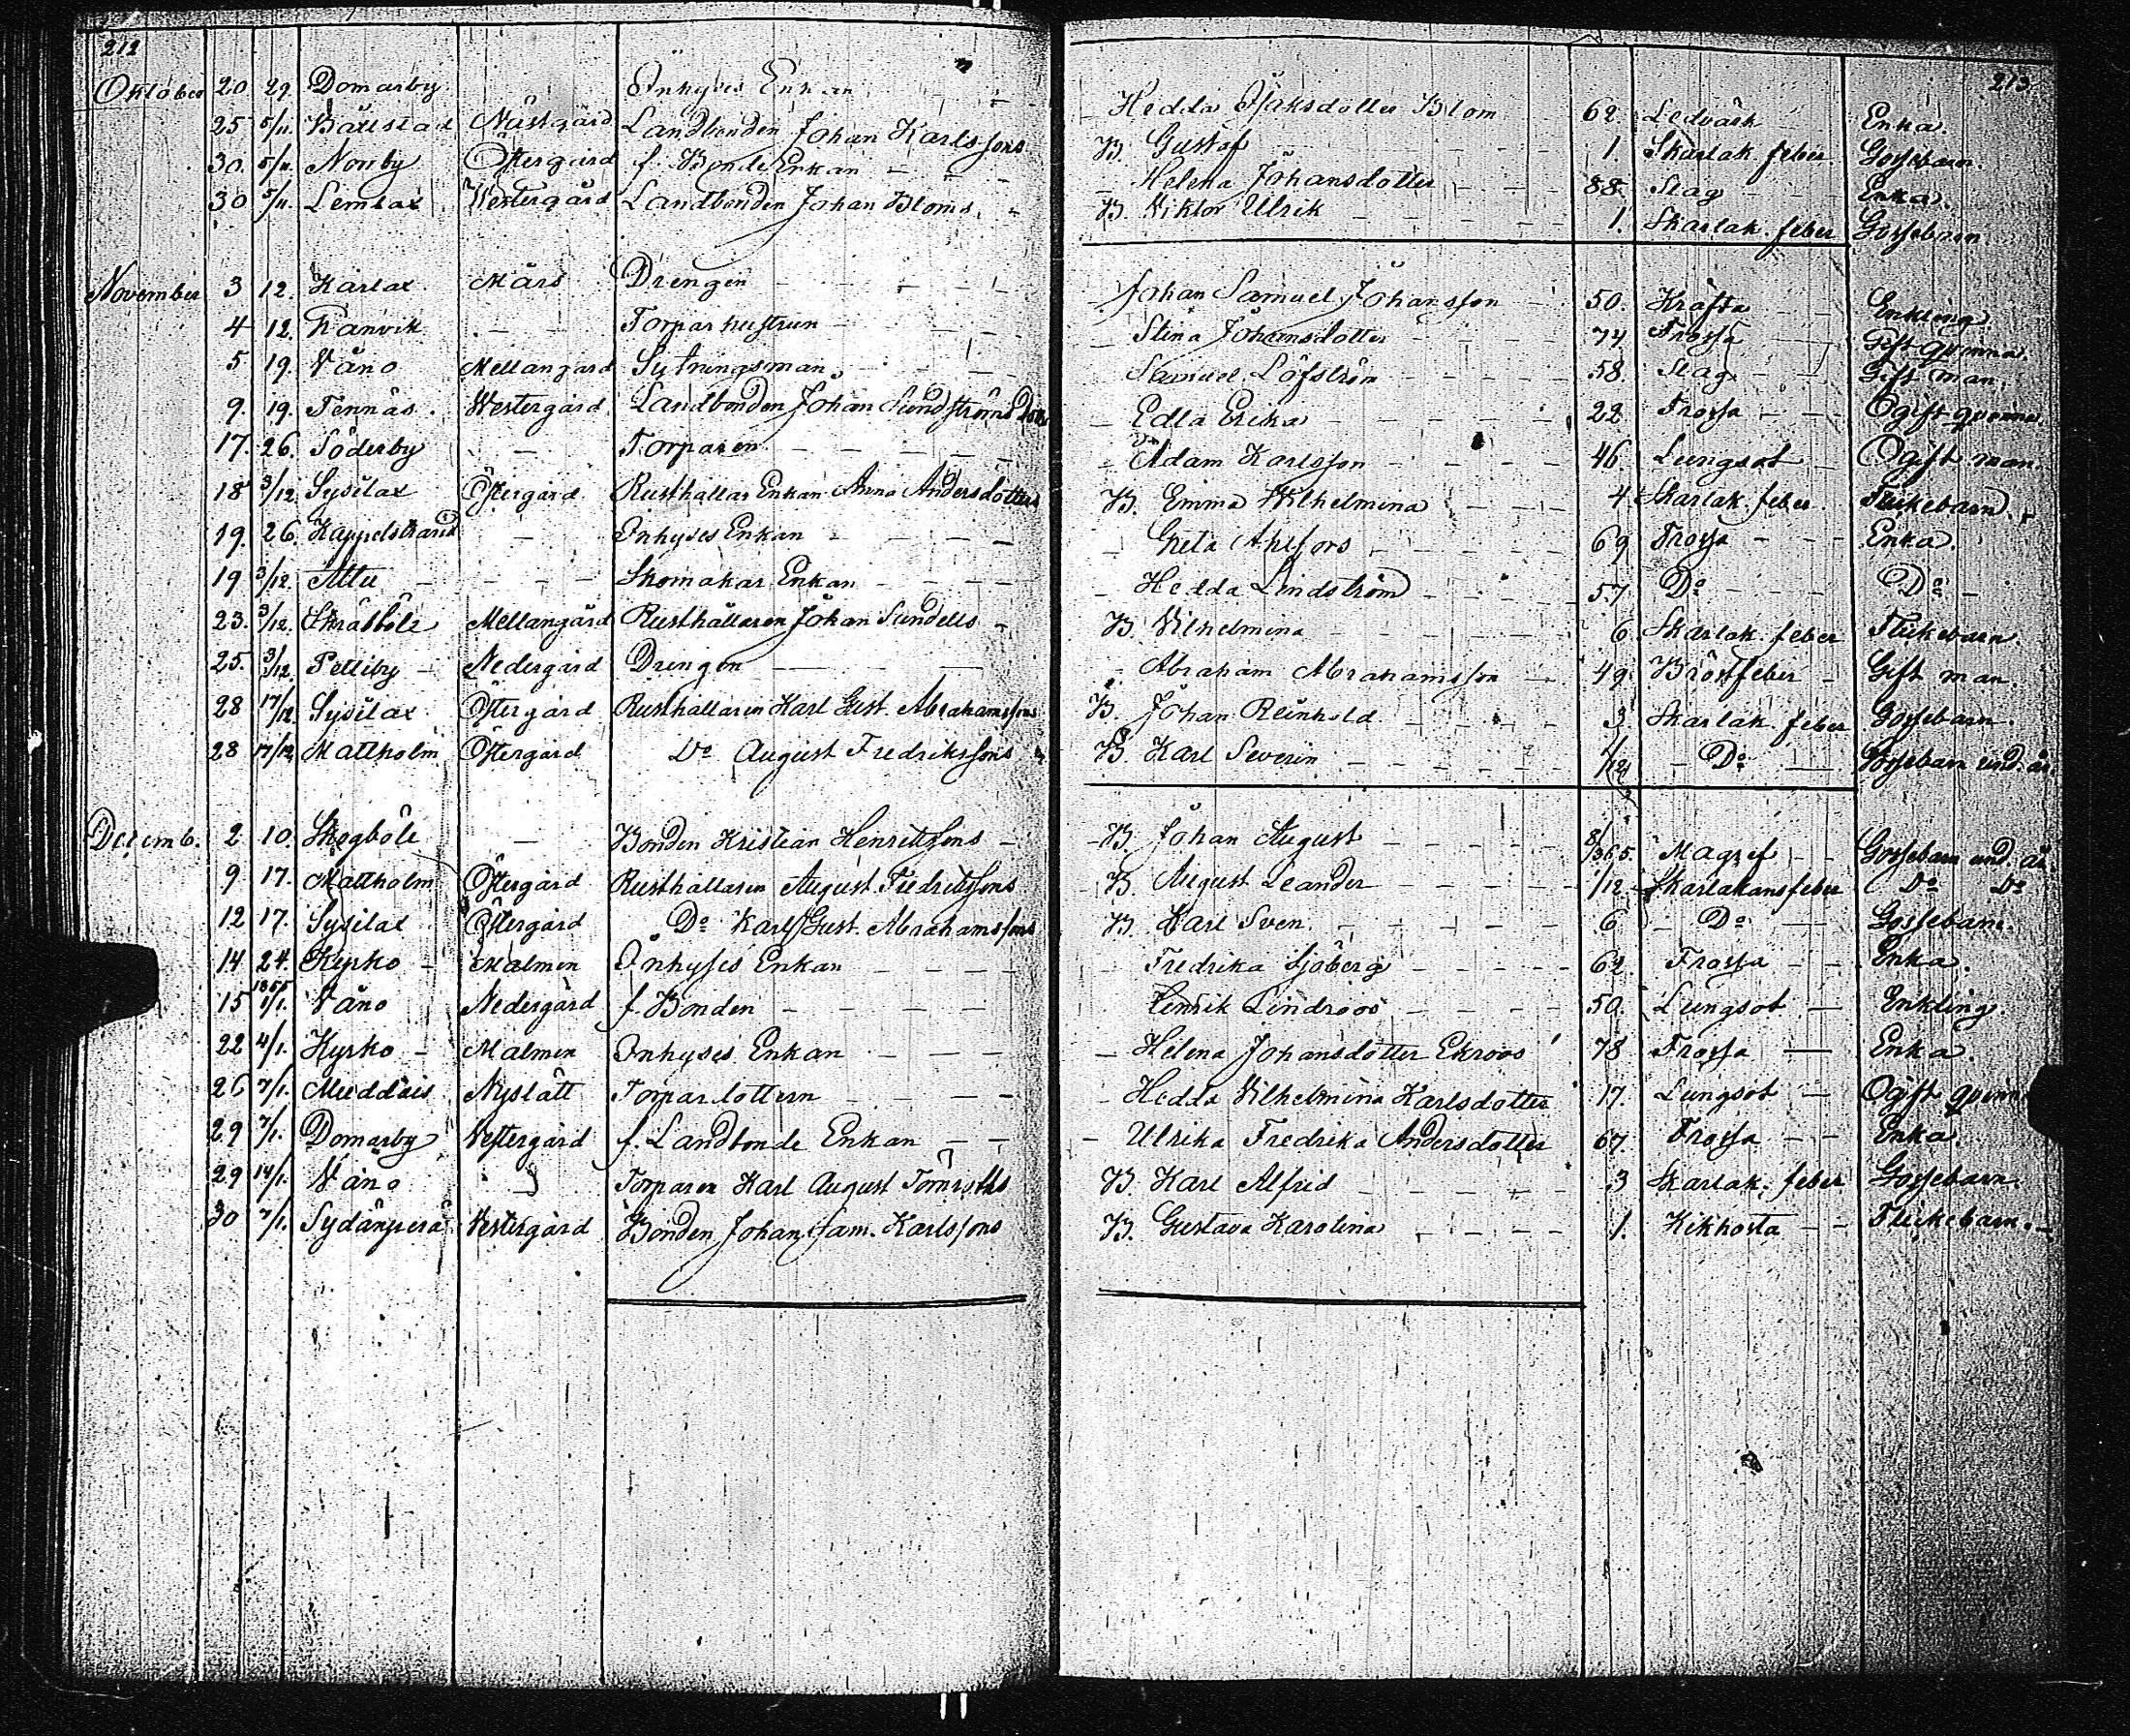 212
213.
Oktober 20 29. Domarby Inhyses Enkan Hedda Isaksdotter Blom 62. Ledvärk Enka.
25 5/11. Västgård Landbonden Johan Karlssons B. Gustaf 1. Skarlak. feber Gossebarn.
30. 5/11. Norrby Östergård f. Bonde Enkan Helena Johansdotter 88. Slag Enka.
30 5/11. Lemlax Westergård Landbonden Johan Bloms B. Viktor Ulrik 1. Skarlak. feber Gossebarn
November 3 12. Karlax Mårs Drengen Johan Samuel Johansson 50. Kräfta Enkling.
4 12. Tranvik Torparhustrun Stina Johansdotter 74 Frossa Gift qvinna.
5 19. Våno Mellangård Sytningsman Samuel Löfström 58. Slag Gift man.
9. 19. Tennäs. Westergård Landbonden Johan Sundströms Dotter Edla Erika 22 Frossa Ogift qvinna.
17. 26. Söderby Torparen Adam Karlsson 46 Lungsot Ogift man
18 3/12 Sysilax Östergård Rusthållar Enkan Anna Andersdotters B. Emma Wilhelmina 4 Skarlak. feber. Flickebarn.
19. 26. Kappelstrand Inhyses Enkan Greta Ahlfors 69 Frossa Enka.
19 3/12. Attu Skomakar Enkan Hedda Lindström 57 Do Do
23. 3/12. Skräbböle Mellangård Rusthållaren Johan Sundells B. Vilhelmina 6 Skarlak. feber Flickebarn.
25. 3/12. Pettiby Nedergård Drengen Abraham Abrahamsson 49. Bröstfeber Gift man.
28 17/12. Sysilax Östergård Rusthållaren Karl Gust. Abrahamssons B. Johan Reinhold 3 Skarlak. feber Gossebarn.
28 17/12. Mattholm Östergård Do August Fredrikssons B. Karl Severin Do Gossebarn und. år.
Decemb. 2 10. Skogböle Bonden Kristian Henrikssons B. Johan August 8/365. Magref Gossebarn und. år
9 17. Mattholm Östergård Rusthållaren August Fredrikssons B. August Leander 1/12 Skarlakansfeber Do Do
12 17. Sysilax Östergård Do Karl Gust. Abrahamssons B. Karl Sven. 6 Do Gossebarn.
14 24. Kyrko Malmen Inhyses Enkan Fredrika Sjöberg 62. Frossa Enka.
15 1855 1/1. Våno Nedergård f. Bonden Henrik Lindroos 50. Lungsot Enkling.
22 4/1. Kyrko Malmen Inhyses Enkan Helena Johansdotter Ekroos 78 Frossa Enka
26 7/1. Muddais Nyslätt Torpardottern Hedda Vilhelmina Karlsdotter 17. Lungsot Ogift qvinna
29 7/1. Domarby Vestergård f. Landbonde Enkan Ulrika Fredrika Andersdotter 67. Frossa Enka
29 14/1. Våno Torparen Karl August Törnroths B. Karl Alfrid 3 Skarlak. feber Gossebarn.
30 7/1. Sydänperä Vestergård Bonden Johan Sam. Karlssons B. Gustava Karolina 1. Kikhosta Flickebarn.